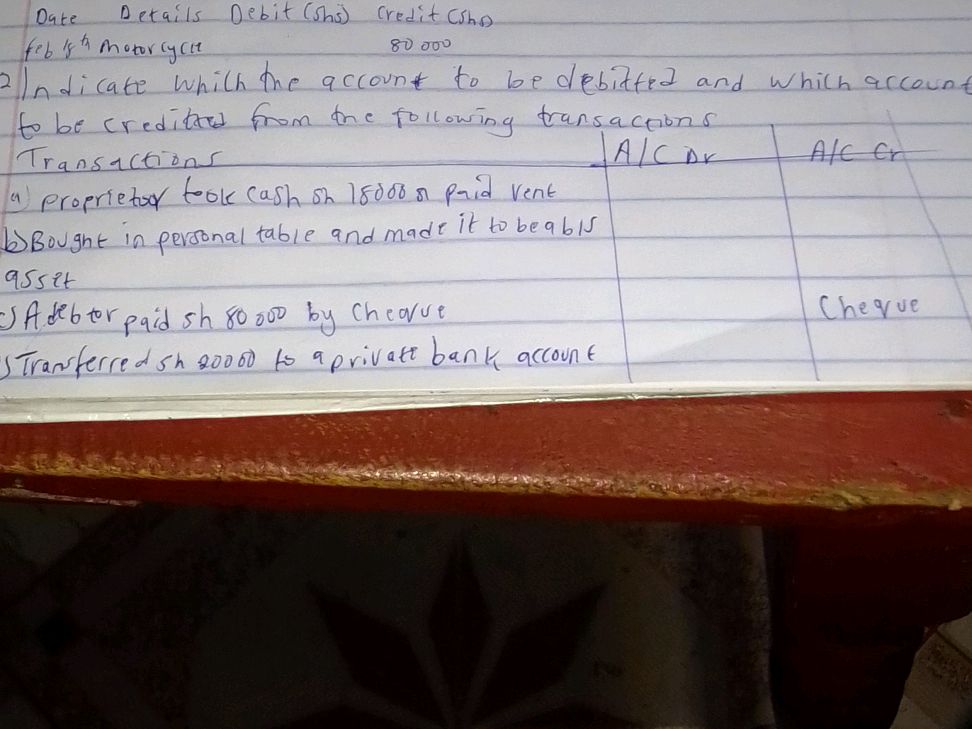 Date Details Debit (shs) Credit (shs)
feb 18th Motorcycle 80 000
2 Indicate which the account to be debitted and which account
to be credited from the following transactions
Transactions A/C Dr A/C Cr
a) proprietor took cash sh 18000 paid rent
b) Bought in personal table and made it to be a b/s
asset
c) A debtor paid sh 80 000 by cheque Cheque
) Transferred sh 20000 to a private bank account